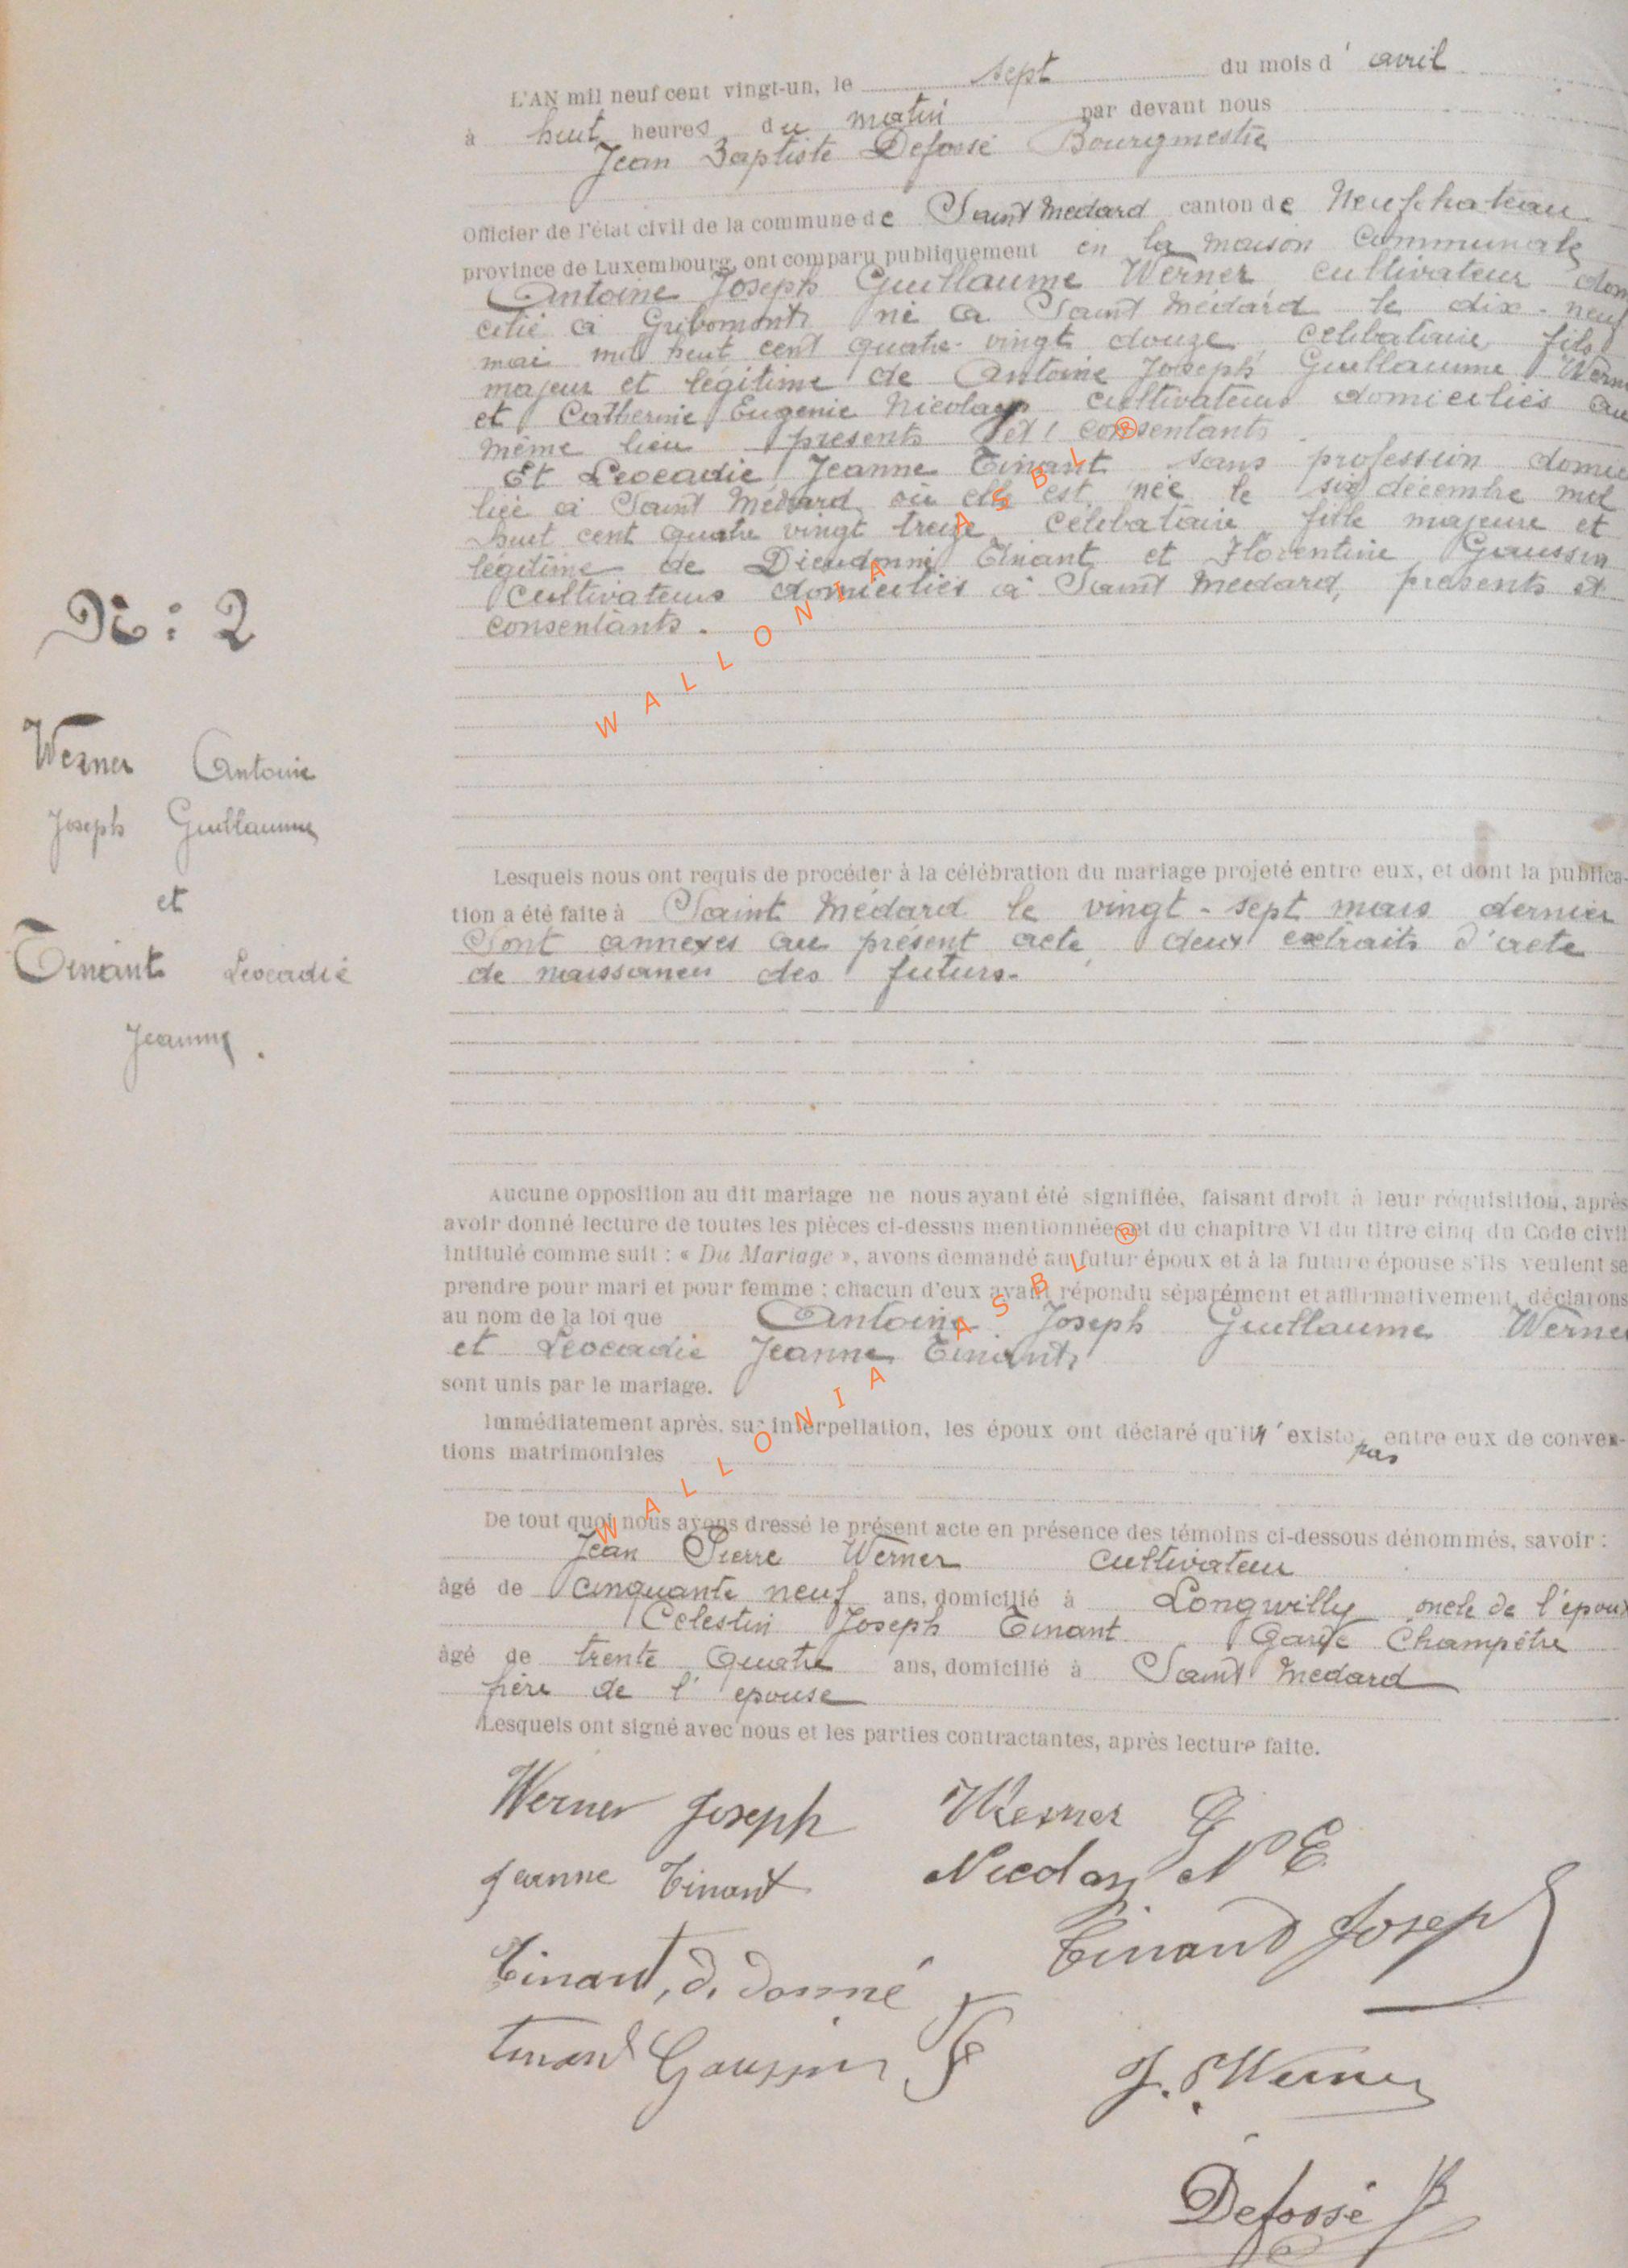 L'AN mil neuf cent vingt-un, le sept du mois d' avril
à huit heures du matin par devant nous
Jean Baptiste Defossé Bourgmestre
Officier de l'état civil de la commune de Saint Médard canton de Neufchateau
province de Luxembourg, ont comparu publiquement en la maison communale
Antoine Joseph Guillaume Werner cultivateur domi
cilié à Gribomont né à Saint Médard le dix-neuf
mai mil huit cent quatre-vingt douze, célibataire, fils
majeur et légitime de Antoine Joseph Guillaume Werner
et Catherine Eugenie Nicolay cultivateurs domiciliés au
même lieu présents et consentants.
Et Leocadie Jeanne Tinant sans profession domici
liée à Saint Médard où elle est née le six décembre mil
huit cent quatre vingt treize célibataire fille majeure et
légitime de Dieudonné Tinant et Florentine Gaussin
cultivateurs domiciliés à Saint Médard, présents et
consentants.
N°: 2
Werner Antoine
Joseph Guillaume
et
Tinant Leocadie
Jeanne.
Lesquels nous ont requis de procéder à la célébration du mariage projeté entre eux, et dont la publica-
tion a été faite à Saint Médard le vingt-sept mars dernier
Sont annexés au présent acte, deux extraits d'acte
de naissances des futurs.
Aucune opposition au dit mariage ne nous ayant été signifiée, faisant droit à leur réquisition, après
avoir donné lecture de toutes les pièces ci-dessus mentionnées et du chapitre VI du titre cinq du Code civil
intitulé comme suit : « Du Mariage », avons demandé au futur époux et à la future épouse s'ils veulent se
prendre pour mari et pour femme ; chacun d'eux ayant répondu séparément et affirmativement, déclarons
au nom de la loi que Antoine Joseph Guillaume Werner
et Léocadie Jeanne Tinant
sont unis par le mariage.
Immédiatement après, sur interpellation, les époux ont déclaré qu'il n'existe pas entre eux de conven-
tions matrimoniales
De tout quoi nous avons dressé le présent acte en présence des témoins ci-dessous dénommés, savoir :
Jean Pierre Werner cultivateur
âgé de cinquante neuf ans, domicilié à Longwilly oncle de l'époux
Celestin Joseph Tinant Garde Champêtre
âgé de trente quatre ans, domicilié à Saint Medard
frère de l'epouse
Lesquels ont signé avec nous et les parties contractantes, après lecture faite.
Werner Joseph Werner G
Jeanne Tinant Nicolay N E
Tinant Joseph
Tinant, d. donné
Tinant Gaussin F
J. P Werner
Defossé JB
WALLONIA ASBL ®
WALLONIA ASBL ®